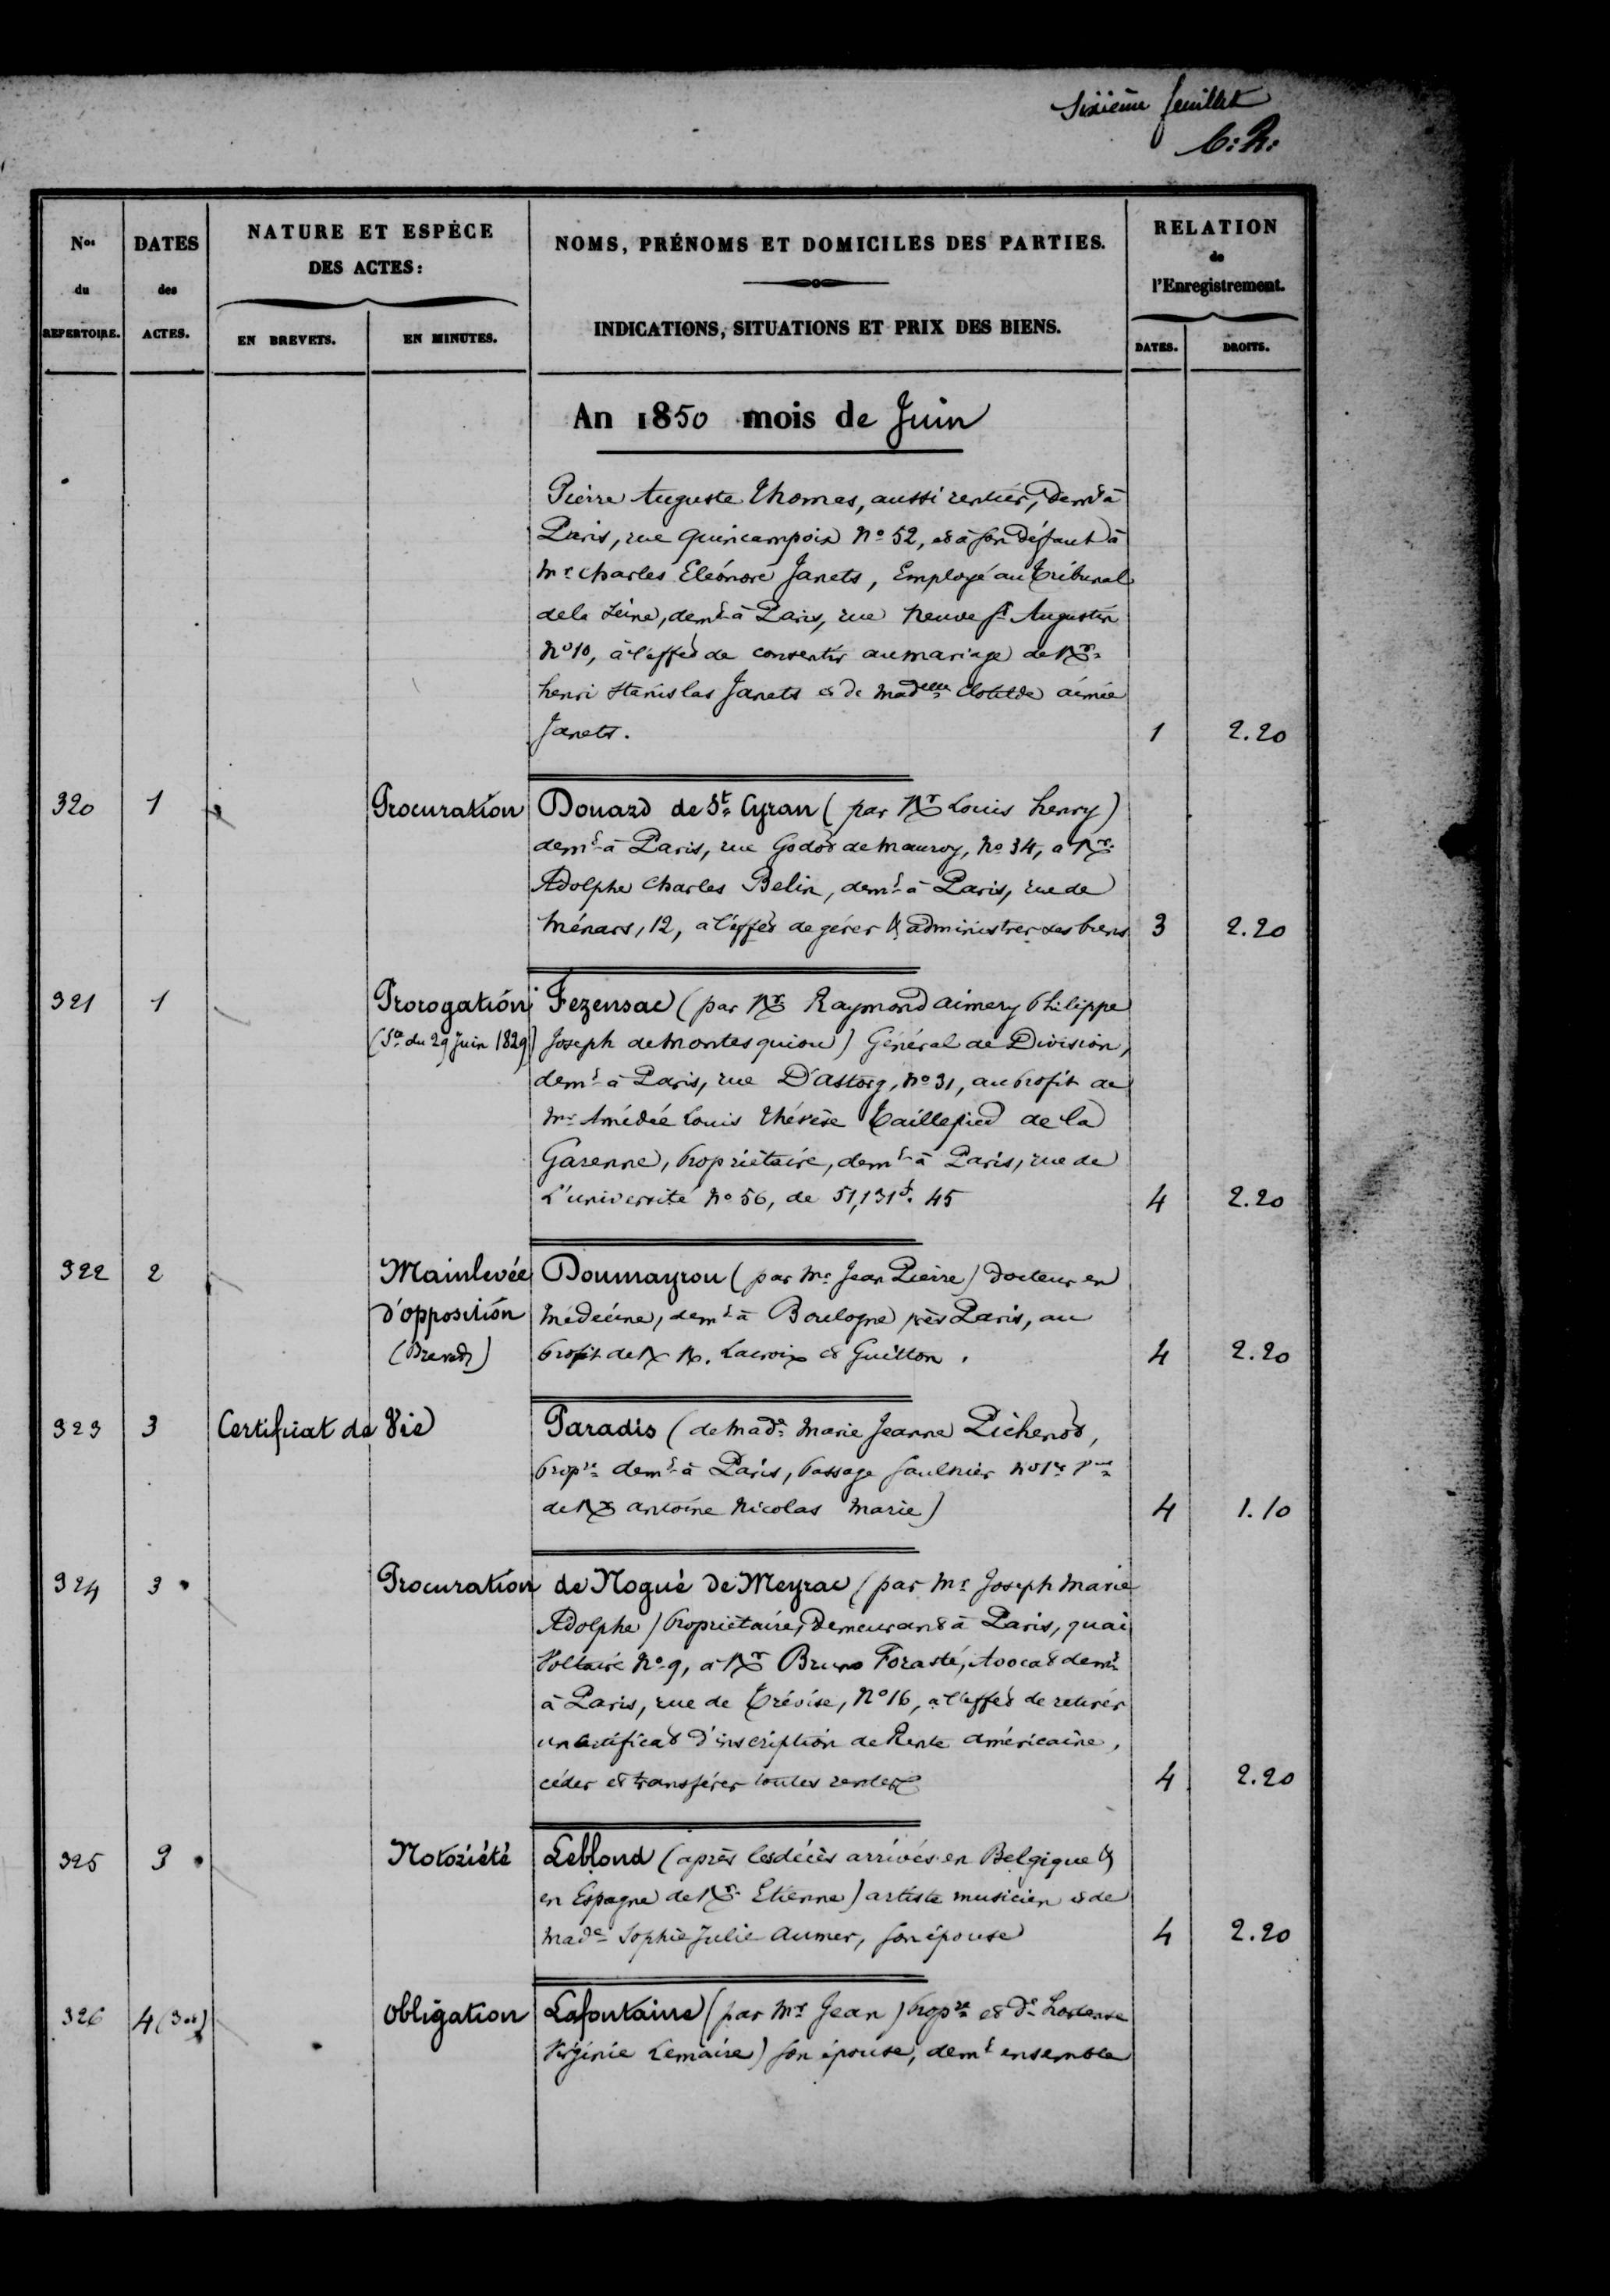 Sixième feuillet
C: R:
Nos du REPERTOIRE.
DATES des ACTES.
NATURE ET ESPÈCE DES ACTES:
EN BREVETS.
EN MINUTES.
NOMS, PRÉNOMS ET DOMICILES DES PARTIES.
INDICATIONS, SITUATIONS ET PRIX DES BIENS.
RELATION de l'Enregistrement.
DATES.
DROITS.
An 1850 mois de Juin
Pierre Auguste Thomas, aussi rentier, demt à
Paris, rue Quincampoix No 52, et à son défaut à
Mr Charles Eléonore Janets, Employé au Tribunal
de la Seine, demt à Paris, rue Neuve St Augustin
No 10, à l'effet de consentir au mariage de Mr
henri Stanislas Janets et de Madelle Clotilde aimée
Janets. 1 2.20
320 1 Procuration Douard de St Cyran (par Mr Louis henry)
demt à Paris, rue Godot de Mauroy, No 34, à Mr
Adolphe Charles Belin, demt à Paris, rue de
Ménars, 12, à l'effet de gérer & administrer ses biens 3 2.20
321 1 Prorogation Fezensac (par Mr Raymond aimery Philippe
(Son du 29 Juin 1829) Joseph de Montesquiou) Général de Division,
demt à Paris, rue D'astorg, No 31, au profit de
Mr Amédée Louis Thérèse Taillepied de la
Garenne, propriétaire, demt à Paris, rue de
L'université No 56, de 51,131f. 45 4 2.20
322 2 Mainlevée Doumayrou (par Mr Jean Pierre) docteur en
d'opposition Médecine, demt à Boulogne près Paris, au
(Brevet) profit de M M. Lacroix et Guitton. 4 2.20
323 3 Certificat de Vie Paradis (de Made Marie Jeanne Pichenot,
propre demt à Paris, passage Saulnier No
de Mr antoine Nicolas Marie) 4 1.10
324 3 Procuration de Nogué de Meyrac (par Mr Joseph Marie
Adolphe) propriétaire, Demeurant à Paris, quai
Voltaire No 9, à Mr Bruno Forasté, Avocat demt
à Paris, rue de Trévise, No 16, à l'effet de retirer
un certificat d'inscription de Rente américaine,
céder et transférer toutes rentes 4 2.20
325 3 Notoriété Leblond (après les décès arrivés en Belgique &
en Espagne de Mr Etienne) artiste musicien et de
Made Sophie Julie Aumer, son épouse 4 2.20
326 4 Obligation Lafontaine (par Mr Jean) propre et De Hortense
Virginie Lemaire) son épouse, demt ensemble